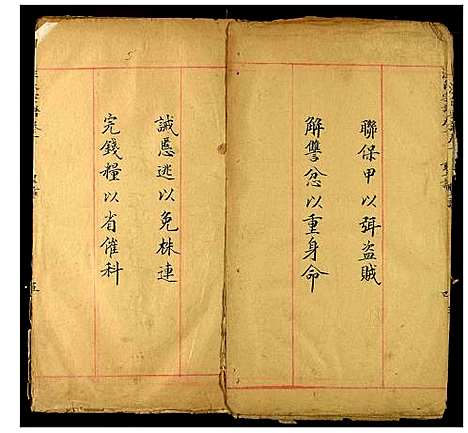 聯保甲以弭盜賊
解讐忿以重身命
誡慝逃以免株連
完錢糧以省催科